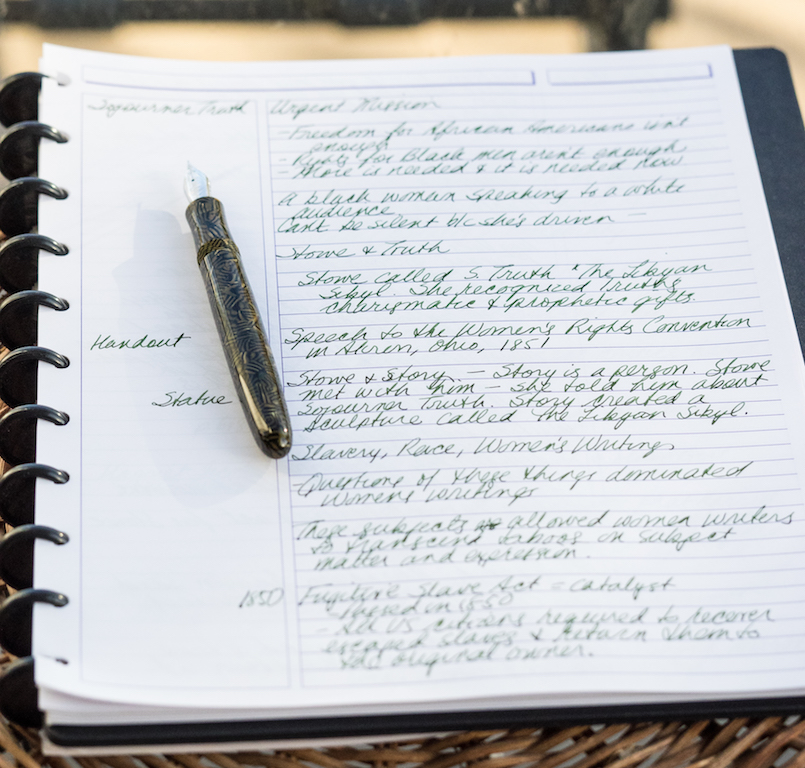 Sojourner Truth
Urgent Mission
- Freedom for African Americans isn't
enough
- Rights for Black men aren't enough
- More is needed & it is needed now
A black woman speaking to a white
audience
Can't be silent b/c she's driven
Stowe & Truth
Stowe called S. Truth "The Libyan
Sibyl. She recognized Truth's
charismatic & prophetic gifts.
Handout
Speech to the Women's Rights Convention
in Akron, Ohio, 1851
Stowe & Story. - Story is a person. Stowe
met with him - She told him about
Statue
Sojourner Truth. Story created a
sculpture called The Libyan Sibyl.
Slavery, Race, Women's Writings
- Questions of these things dominated
Women's writings
These subjects allowed women writers
to transcend taboos on subject
matter and expression.
1850
Fugitive Slave Act = catalyst
- Passed in 1850
- All US citizens required to recover
escaped slaves & return them to
the original owner.